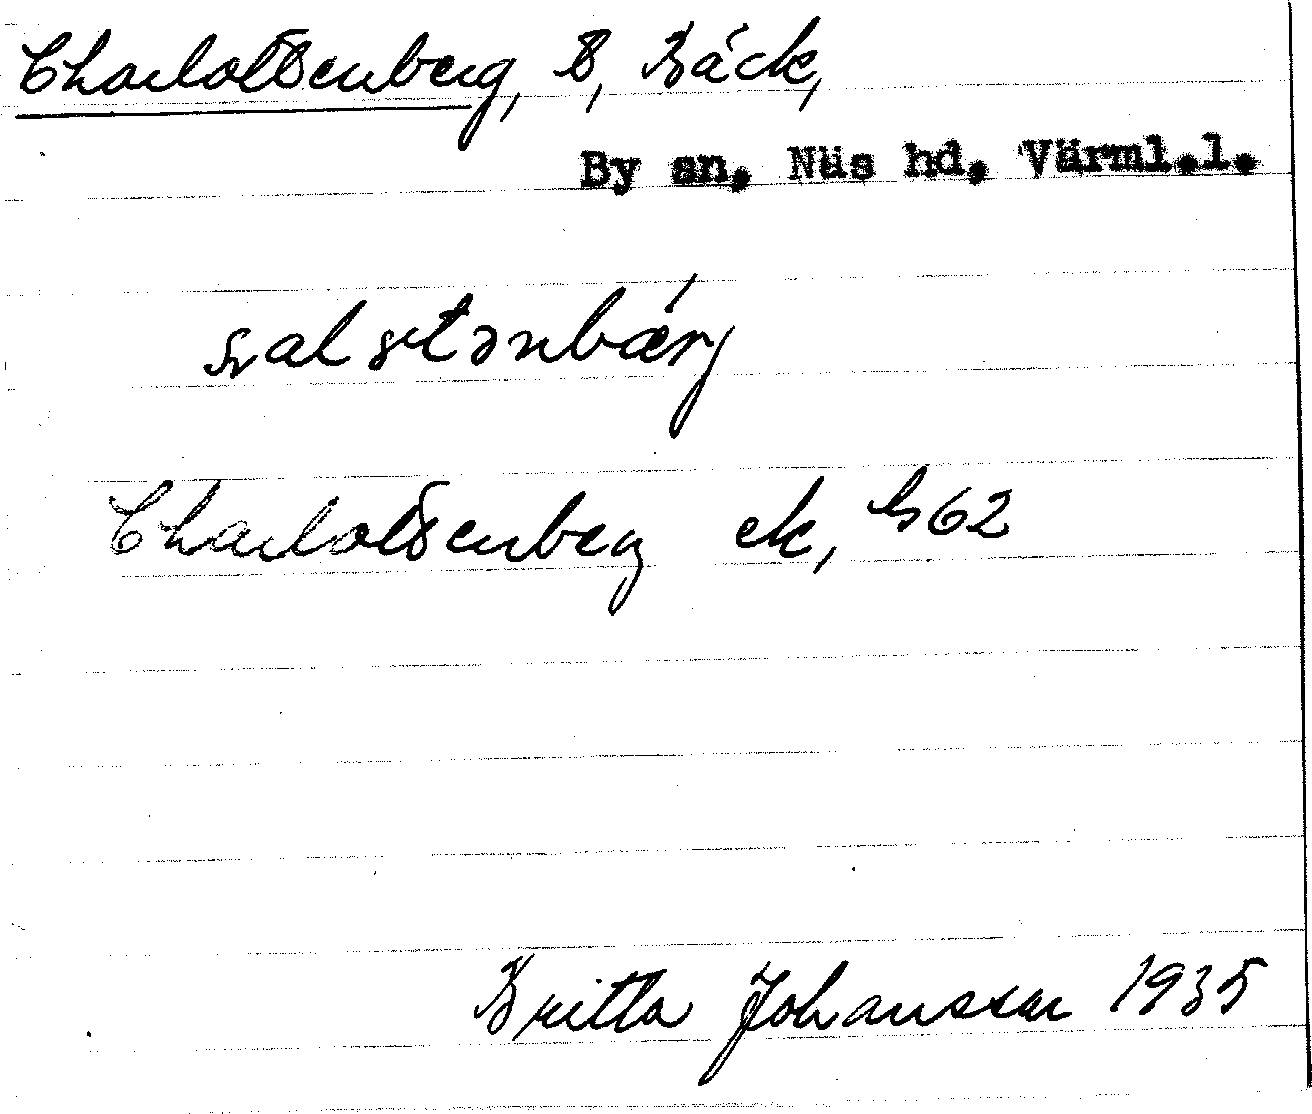 Charlottenberg, B, Bäck,
By sn, Näs hd, Värml.l.
Charlottenberg ek, G62
Britta Johansson 1935